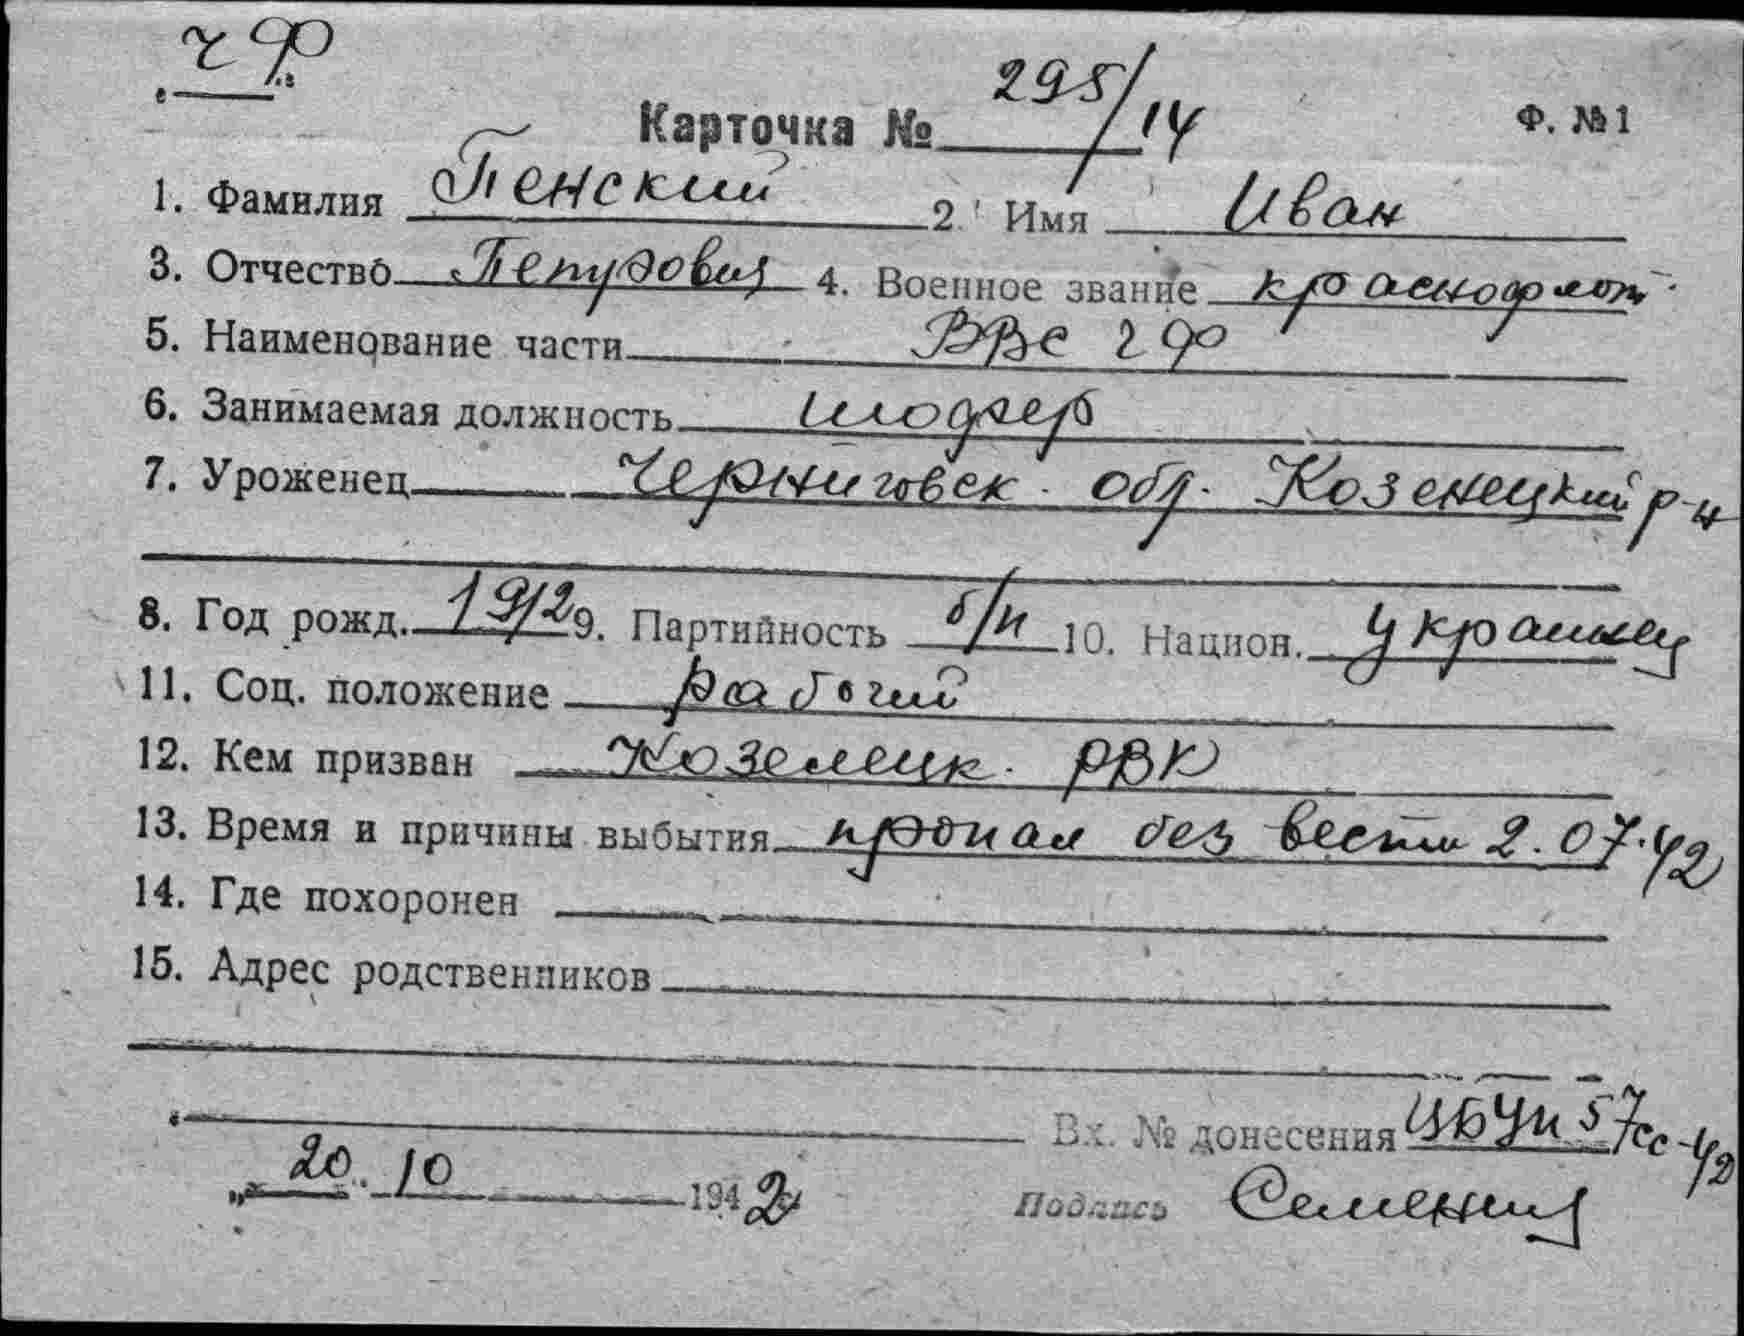 ч ф
Карточка № 295/14 Ф. №1
1. Фамилия Генский 2 Имя Иван
3. Отчество 4. Военное звание краснофлот.
5. Наименование части ВВС ЧФ
6. Занимаемая должность шофер
7. Уроженец Черниговск. обл. Козенецкий р-н
8. Год рожд. 1912 9. Партийность б/п 10. Национ. украинец
11. Соц. положение рабочий
12. Кем призван Козелецк. РВК
13. Время и причины выбытия пропал без вести 2.07.42
14. Где похоронен
15. Адрес родственников
Вх. № донесения 57сс-42
„ 20. 10 1942
Подпись